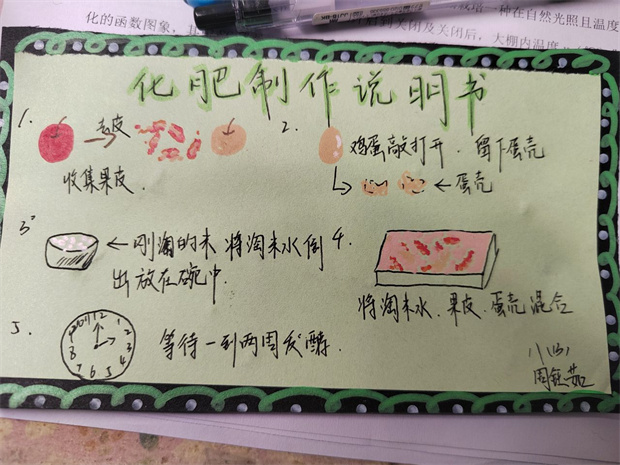 化的函数图象，
一种在自然光照且温度
到关闭及关闭后，大棚内温度
化肥制作说明书
1.
去皮
收集果皮.
2.
鸡蛋敲打开. 留下蛋壳
蛋壳
3.
刚淘的米 将淘米水倒
出放在碗中.
4.
将淘米水、果皮、蛋壳混合
5.
12 1 2 3 4 5 6 7 8 9 10 11
等待一到两周发酵.